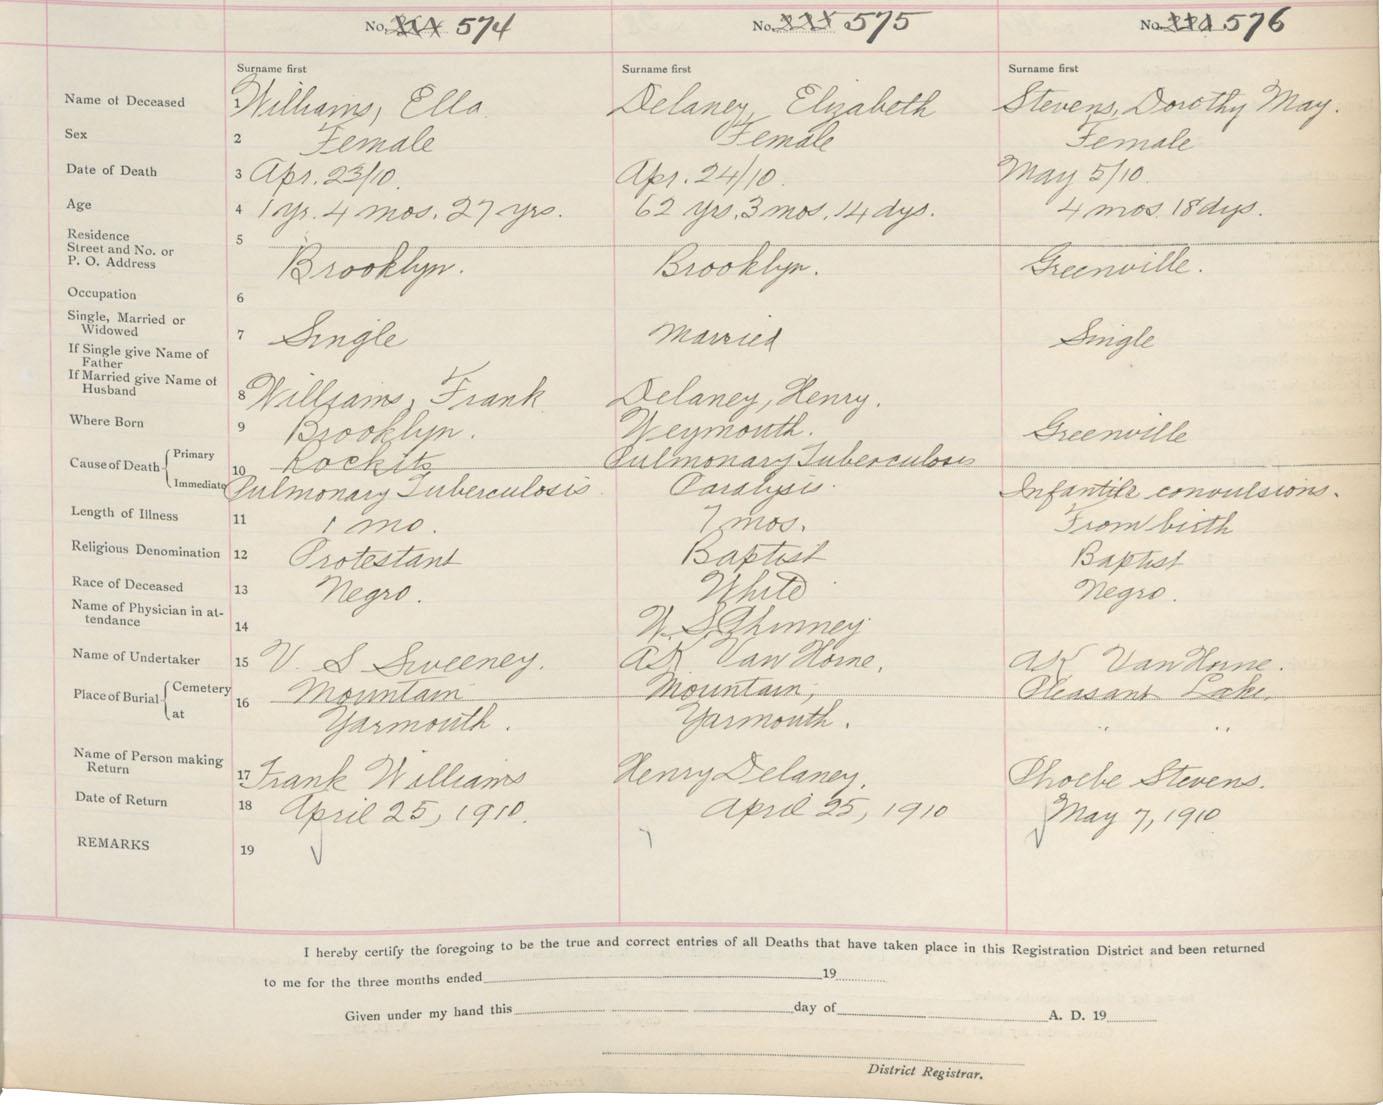 No. 574 No. 575 No. 576
Surname first Surname first Surname first
Name of Deceased 1 Williams, Ella Delaney, Elizabeth Stevens, Dorothy May.
Sex 2 Female Female Female
Date of Death 3 Apr. 23/10. Apr. 24/10. May 5/10.
Age 4 1 yr. 4 mos. 27 yrs. 62 yrs. 3 mos. 14 dys. 4 mos. 18 dys.
Residence 5
Street and No. or
P. O. Address Brooklyn. Brooklyn. Greenville.
Occupation 6
Single, Married or
Widowed 7 Single Married Single
If Single give Name of
Father
If Married give Name of
Husband 8 Williams, Frank Delaney, Henry.
Where Born 9 Brooklyn. Weymouth. Greenville
Cause of Death Primary 10 Rockits Pulmonary Tuberculosis
Immediate Pulmonary Tuberculosis Paralysis. Infantile convulsions.
Length of Illness 11 1 mo. 7 mos. From birth
Religious Denomination 12 Protestant Baptist Baptist
Race of Deceased 13 Negro. White Negro.
Name of Physician in at-
tendance 14 W. S. Phinney
Name of Undertaker 15 V. S Sweeney. A K Van Horne. A K Van Horne.
Place of Burial Cemetery 16 Mountain Mountain, Pleasant Lake.
at Yarmouth. Yarmouth. " "
Name of Person making
Return 17 Frank Williams Henry Delaney. Phoebe Stevens.
Date of Return 18 April 25, 1910. April 25, 1910 May 7, 1910
REMARKS 19
I hereby certify the foregoing to be the true and correct entries of all Deaths that have taken place in this Registration District and been returned
to me for the three months ended 19
Given under my hand this day of A. D. 19
District Registrar.